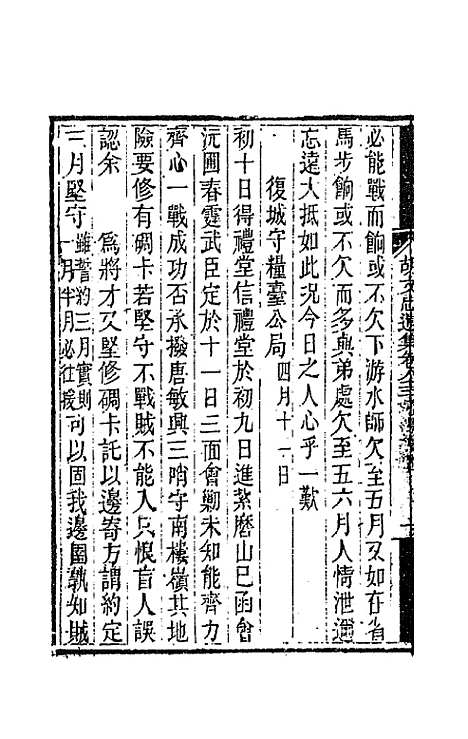 必能戰而餉或不欠下游水師欠至五月又如在省
馬步餉或不欠而多與弟處欠至五六月人情泄邇
忘遠大抵如此況今日之人心乎一歎
復城守糧臺公局四月十一日
初十日得禮堂信禮堂於初九日進紮磨山已函會
沅圃春霆武臣定於十一日三面會勦未知能齊力
齊心一戰成功否承撥唐敏興三哨守南樓嶺其地
險要修有碉卡若堅守不戰賊不能入只恨盲人誤
認余 為將才又堅修碉卡託以邊寄方謂約定
三月堅守雖誓約三月實則一月半月必往援可以固我邊圉孰知賊